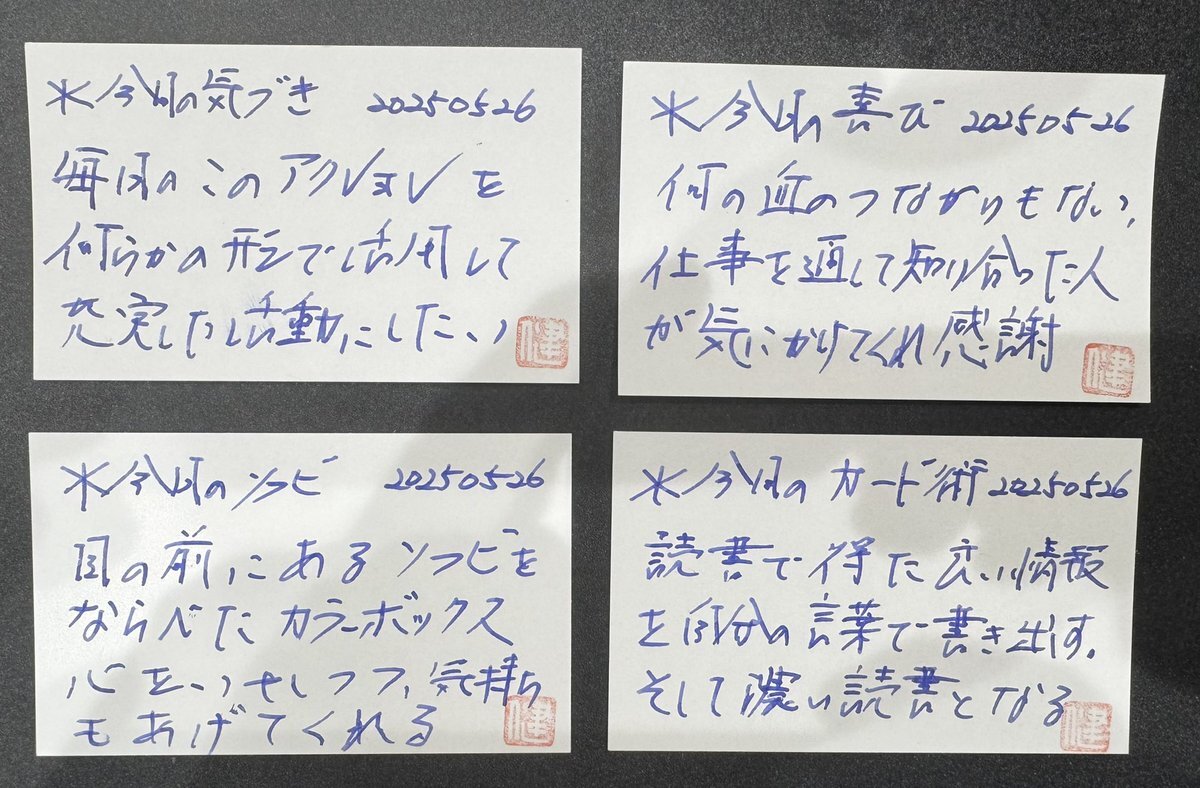 *今朝の気づき 20250526
毎日のこのアクションを
何らかの形で活用して
充実した活動にしたい
健
*今朝の喜び 20250526
何の血のつながりもない、
仕事を通して知り合った人
が気にかけてくれ感謝
健
*今朝のソフビ 20250526
目の前にあるソフビを
ならべたカラーボックス
心をいやしつつ、気持ち
もあげてくれる
健
*今朝のカード術 20250526
読書で得た広い情報
を自分の言葉で書き出す。
そして濃い読書となる
健